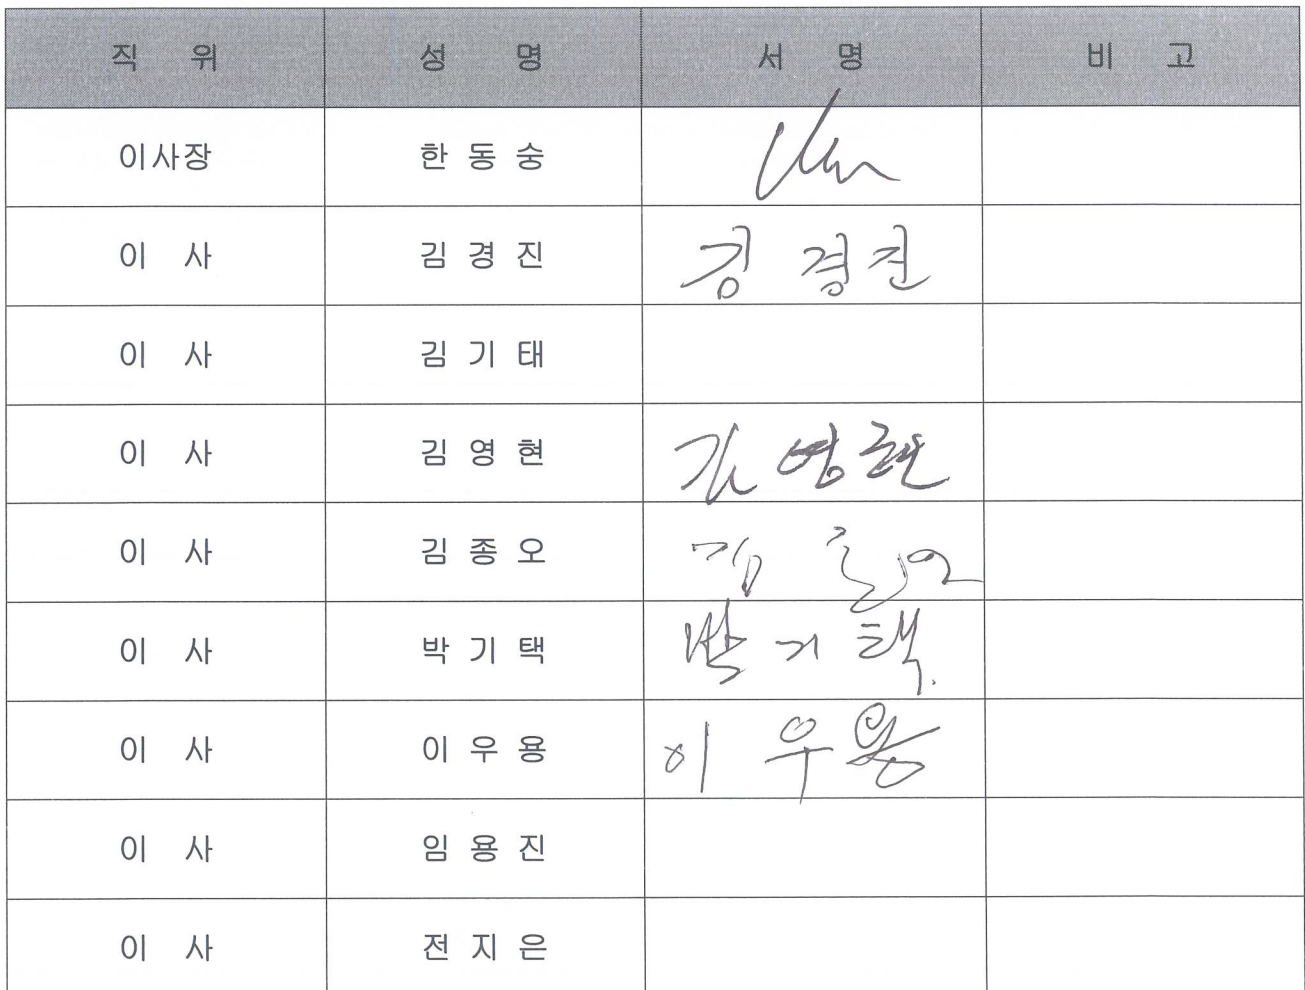 직 위 성 명 서 명 비 고
이사장 한 동 숭
이 사 김 경 진 김 경진
이 사 김 기 태
이 사 김 영 현 김 영현
이 사 김 종 오 김 종오
이 사 박 기 택 박 기 택
이 사 이 우 용 이 우용
이 사 임 용 진
이 사 전 지 은